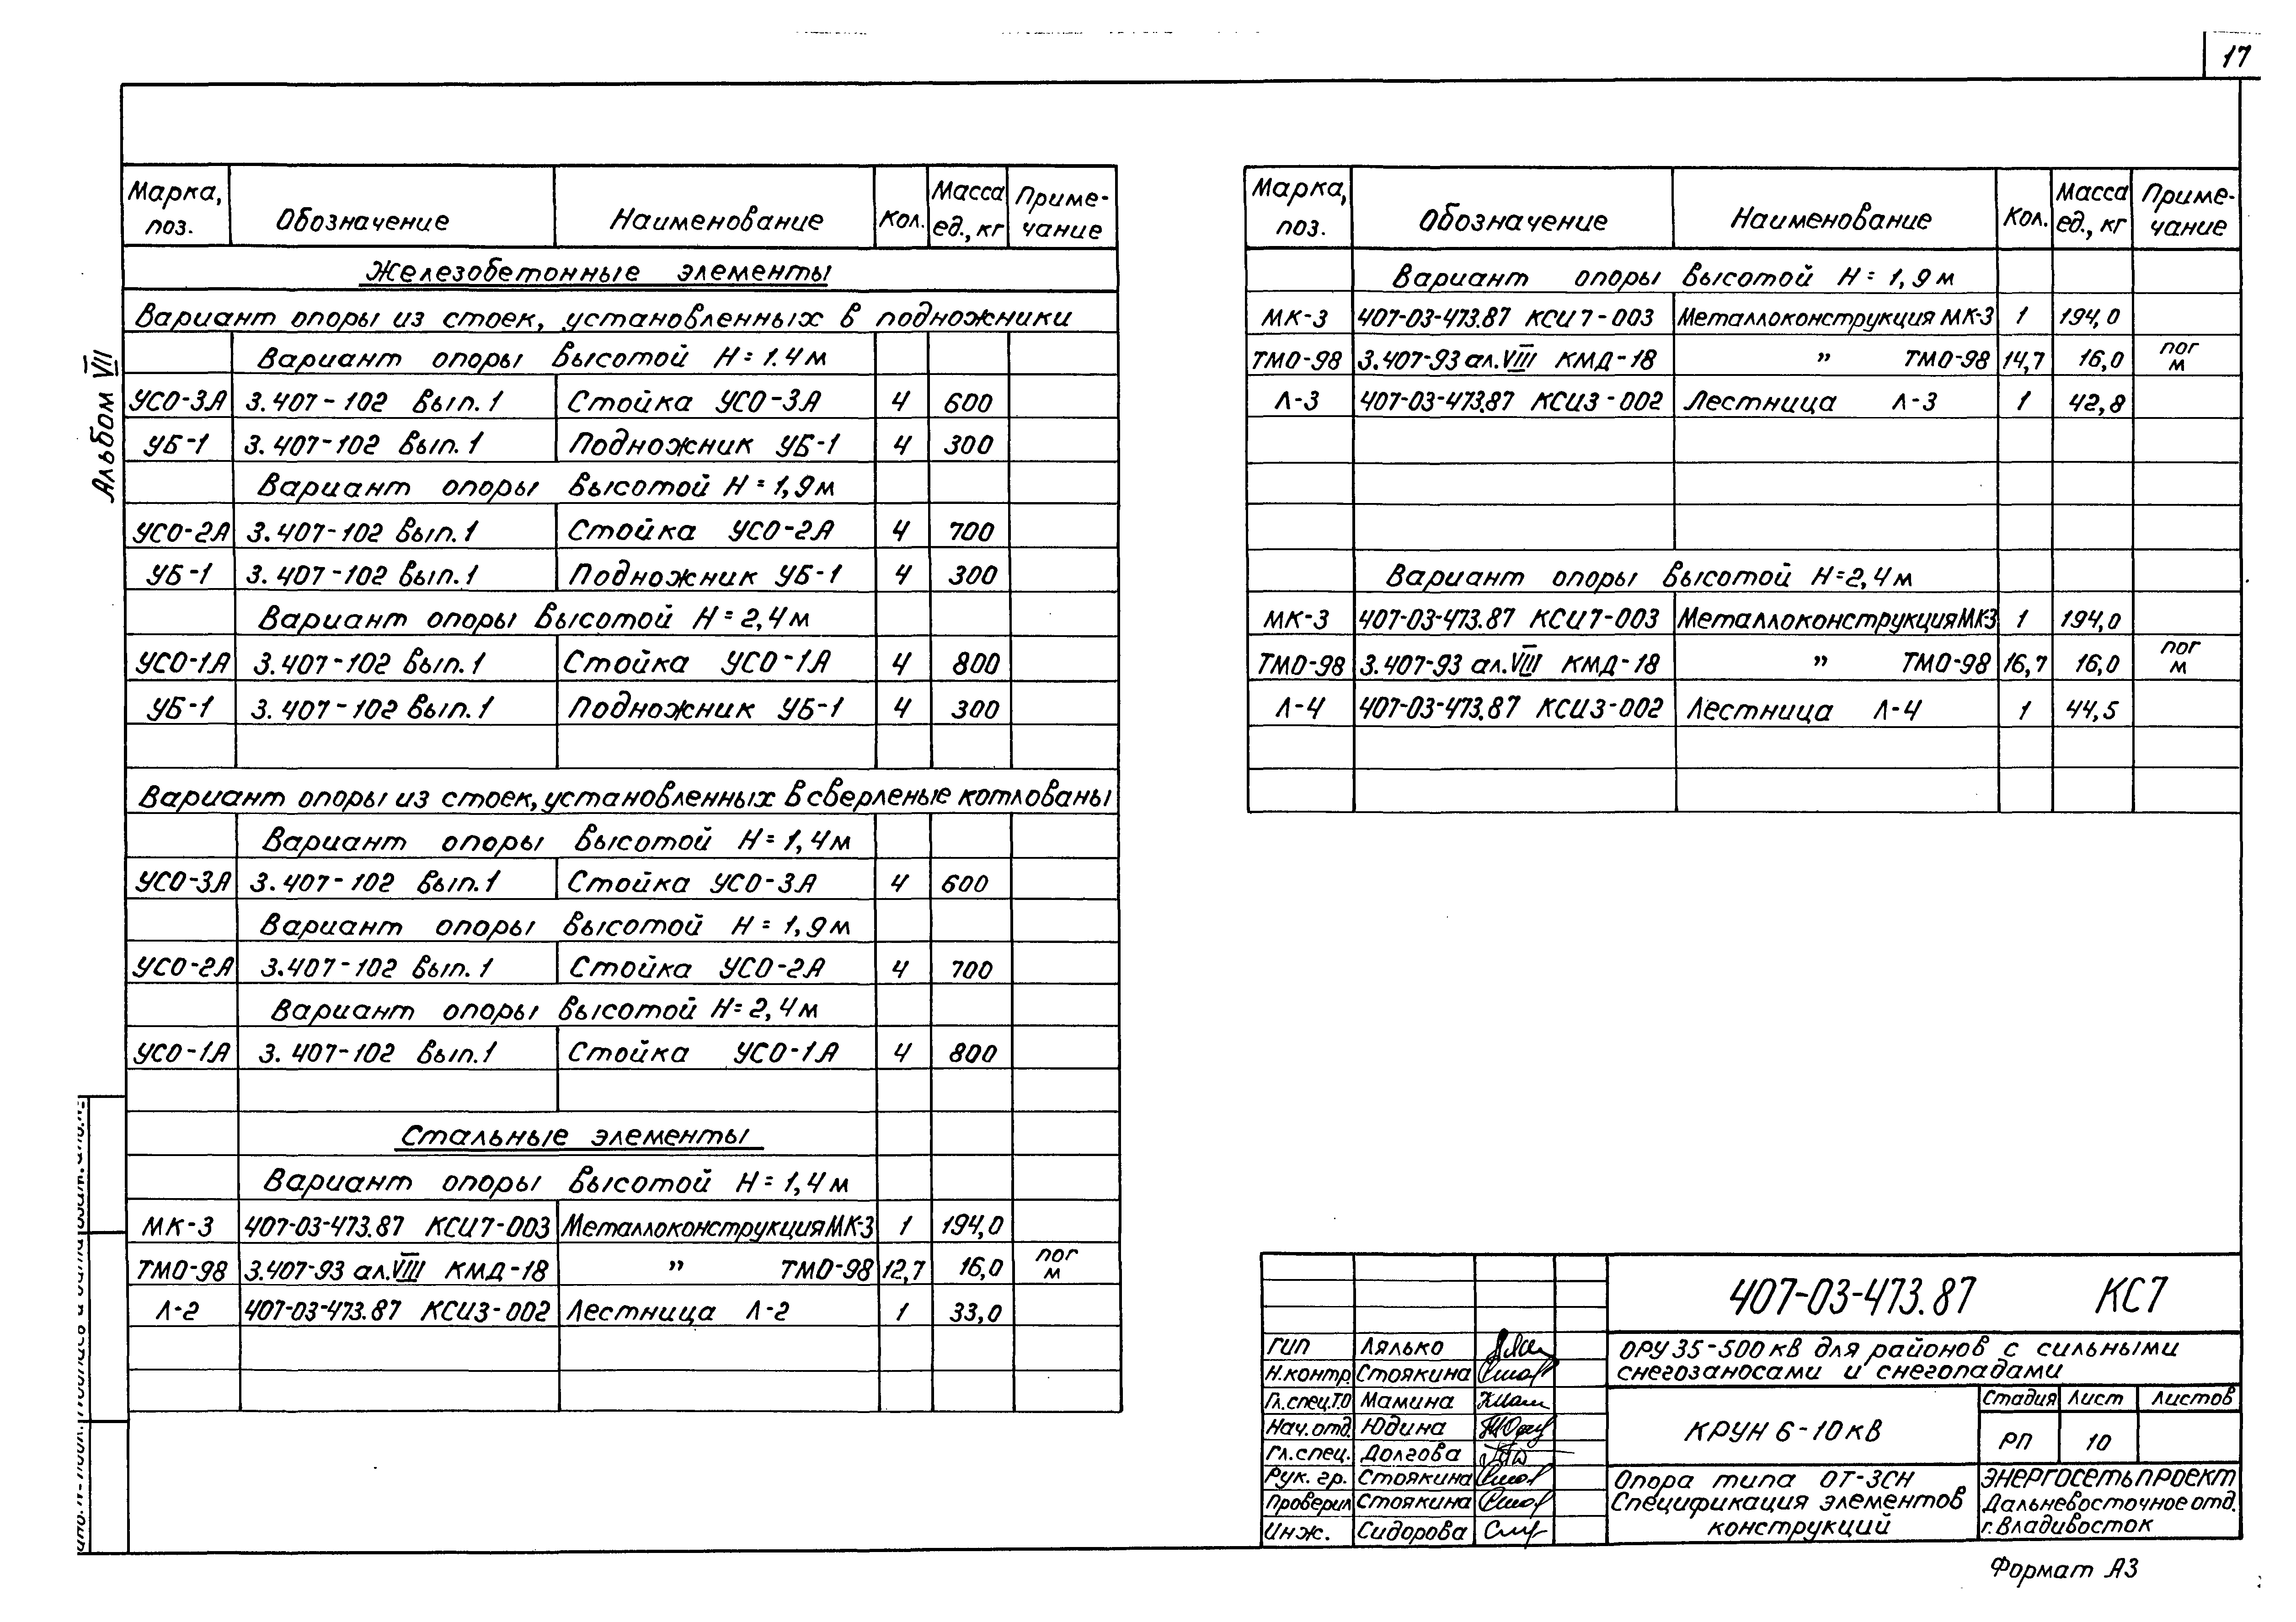 17
Альбом VII
Марка, поз. Обозначение Наименование Кол. Масса ед., кг Приме-чание
Железобетонные элементы
Вариант опоры из стоек, установленных в подножники
Вариант опоры высотой Н = 1.4 м
УСО-3А 3.407-102 вып.1 Стойка УСО-3А 4 600
УБ-1 3.407-102 вып.1 Подножник УБ-1 4 300
Вариант опоры высотой Н = 1,9 м
УСО-2А 3.407-102 вып.1 Стойка УСО-2А 4 700
УБ-1 3.407-102 вып.1 Подножник УБ-1 4 300
Вариант опоры высотой Н = 2,4 м
УСО-1А 3.407-102 вып.1 Стойка УСО-1А 4 800
УБ-1 3.407-102 вып.1 Подножник УБ-1 4 300
Вариант опоры из стоек, установленных в сверленые котлованы
Вариант опоры высотой Н = 1,4 м
УСО-3А 3.407-102 вып.1 Стойка УСО-3А 4 600
Вариант опоры высотой Н = 1,9 м
УСО-2А 3.407-102 вып.1 Стойка УСО-2А 4 700
Вариант опоры высотой Н = 2,4 м
УСО-1А 3.407-102 вып.1 Стойка УСО-1А 4 800
Стальные элементы
Вариант опоры высотой Н = 1,4 м
МК-3 407-03-473.87 КСИ7-003 Металлоконструкция МК-3 1 194,0
ТМО-98 3.407-93 ал.VIII КМД-18 " ТМО-98 12,7 16,0 пог м
Л-2 407-03-473.87 КСИ3-002 Лестница Л-2 1 33,0
Марка, поз. Обозначение Наименование Кол. Масса ед., кг Приме-чание
Вариант опоры высотой Н = 1,9 м
МК-3 407-03-473.87 КСИ7-003 Металлоконструкция МК-3 1 194,0
ТМО-98 3.407-93 ал.VIII КМД-18 " ТМО-98 14,7 16,0 пог м
Л-3 407-03-473.87 КСИ3-002 Лестница Л-3 1 42,8
Вариант опоры высотой Н = 2,4 м
МК-3 407-03-473.87 КСИ7-003 Металлоконструкция МК-3 1 194,0
ТМО-98 3.407-93 ал.VIII КМД-18 " ТМО-98 16,7 16,0 пог м
Л-4 407-03-473.87 КСИ3-002 Лестница Л-4 1 44,5
407-03-473.87 КС7
ГИП Лялько
Н.контр. Стоякина
Гл.спец.ТО Мамина
Нач.отд. Юдина
Гл.спец. Долгова
Рук. гр. Стоякина
Проверил Стоякина
Инж. Сидорова
ОРУ 35-500 кВ для районов с сильными
снегозаносами и снегопадами
КРУН 6-10 кВ
Стадия Лист Листов
РП 10
Опора типа ОТ-3СН
Спецификация элементов
конструкций
ЭНЕРГОСЕТЬПРОЕКТ
Дальневосточное отд.
г.Владивосток
Формат А3